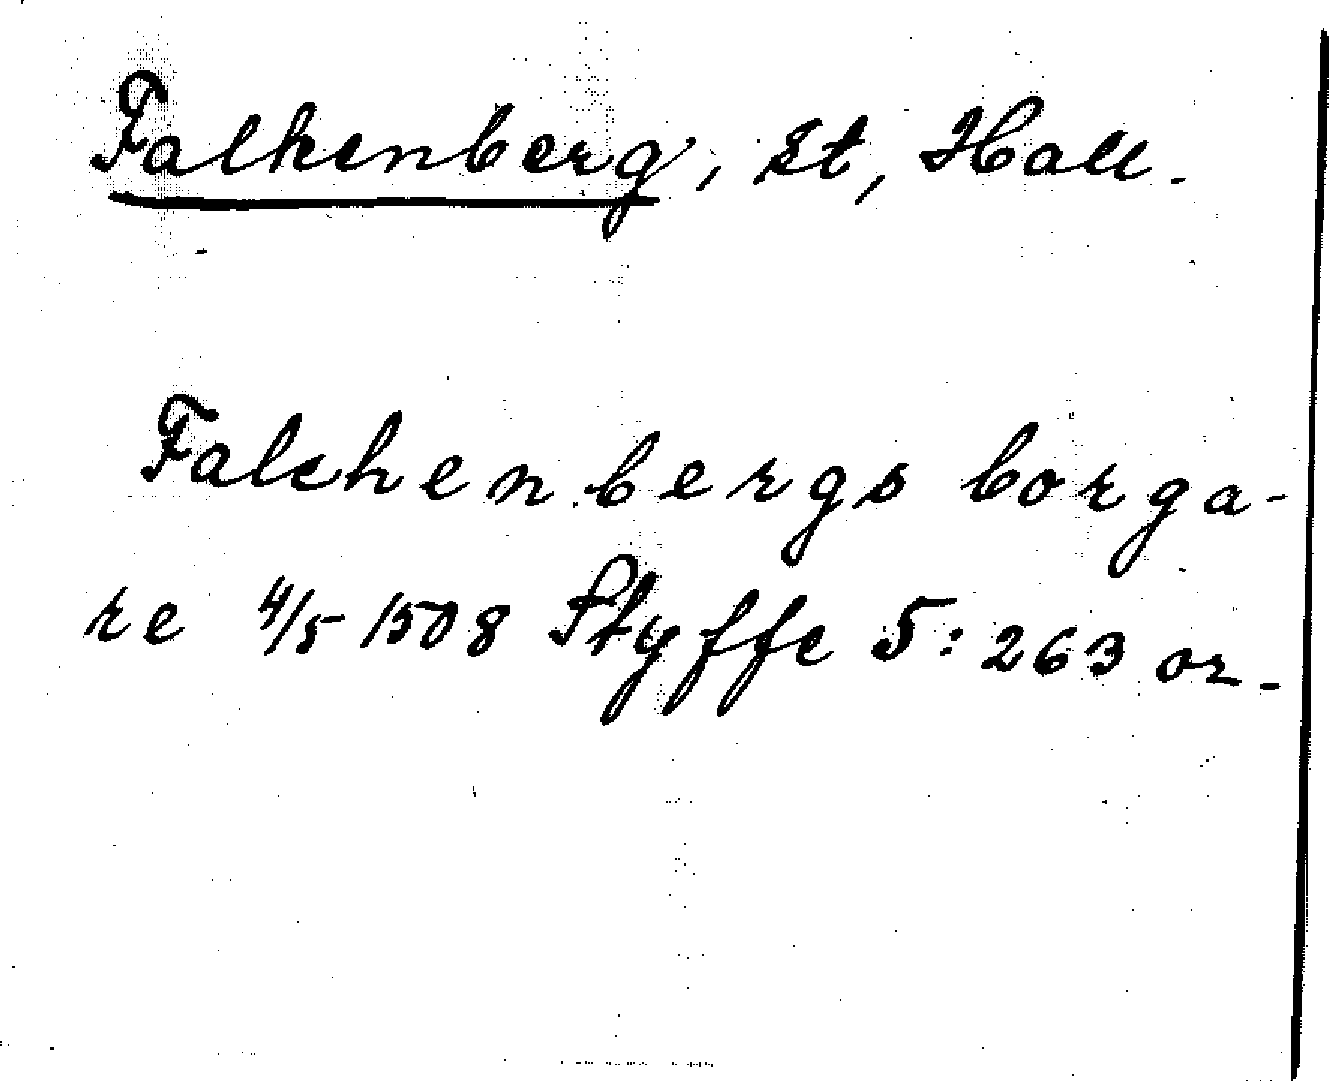 Falkenberg, st, Hall.
Falchenbergs borga-
re 4/5 1508 Styffe 5:263 or.